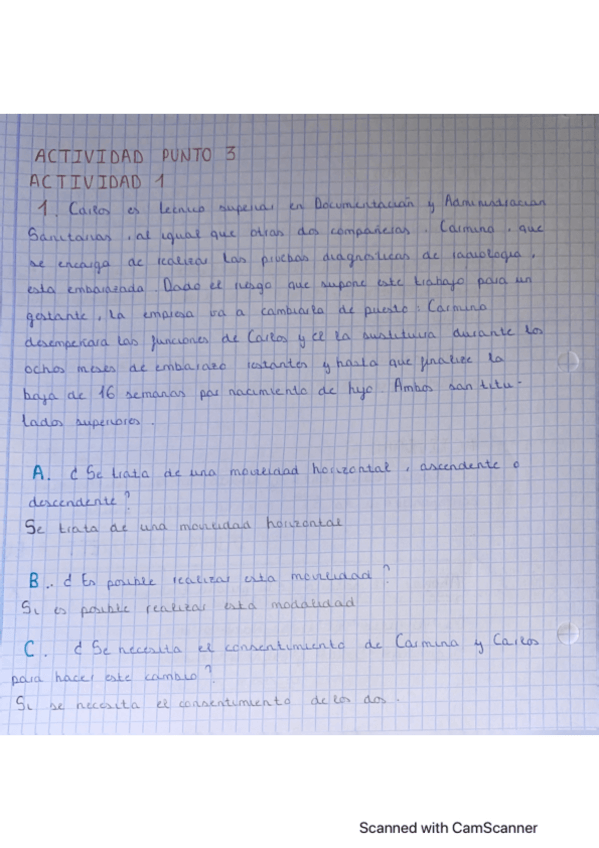 ACTIVIDAD PUNTO 3
ACTIVIDAD 1
1. Carlos es tecnico superior en Documentación y Administracion
Sanitarias, al igual que otras dos compañeras. Carmina, que
se encarga de realizar las pruebas diagnosticas de radiologia,
esta embarazada. Dado el riesgo que supone este trabajo para un
gestante, la empresa va a cambiarla de puesto: Carmina
desempeñara las funciones de Carlos y él la sustituira durante los
ochos meses de embarazo restantes y hasta que finalize la
baja de 16 semanas por nacimiento de hijo. Ambos son titu-
lados superiores.
A. ¿Se trata de una movilidad horizontal, ascendente o
descendente?
Se trata de una movilidad horizontal
B.. ¿Es posible realizar esta movilidad?
Si es posible realizar esta modalidad
C. ¿Se necesita el consentimiento de Carmina y Carlos
para hacer este cambio?
Si se necesita el consentimiento de los dos.
Scanned with CamScanner